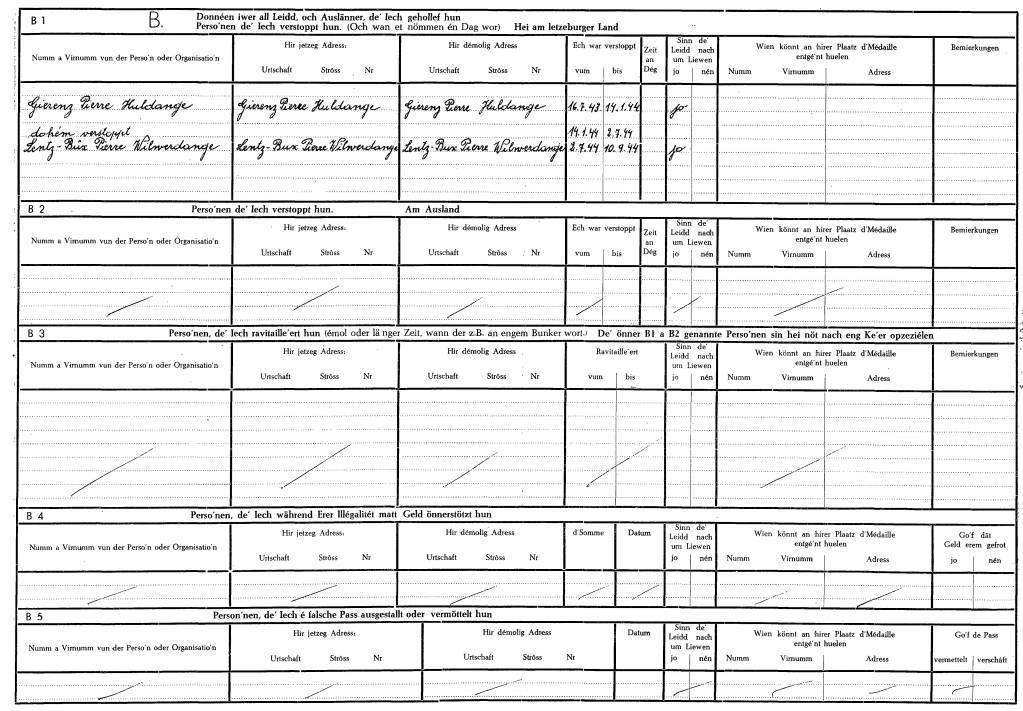 B 1 B. Donnéen iwer all Leidd, och Auslänner, de' Iech gehollef hun
Perso'nen de' Iech verstoppt hun. (Och wan et nömmen én Dag wor) Hei am letzeburger Land
Numm a Virnumm vun der Perso'n oder Organisatio'n
Hir jetzeg Adress:
Urtschaft Ströss Nr
Hir démolig Adress
Urtschaft Ströss Nr
Ech war verstoppt
vum bis
Zeit
an
Dég
Sinn de'
Leidd nach
um Liewen
jo nén
Wien könnt an hirer Plaatz d'Médaille
entgé'nt huelen
Numm Virnumm Adress
Bemierkungen
Gierenz Pierre Huldange Gierenz Pierre Huldange Gierenz Pierre Huldange 16.7.43 14.1.44 jo
dohém verstoppt 14.1.44 2.7.44
Lentz-Bux Pierre Wilwerdange Lentz-Bux Pierre Wilwerdange Lentz-Bux Pierre Wilwerdange 2.7.44 10.9.44 jo
B 2 Perso'nen de' Iech verstoppt hun. Am Ausland
Numm a Virnumm vun der Perso'n oder Organisatio'n
Hir jetzeg Adress:
Urtschaft Ströss Nr
Hir démolig Adress
Urtschaft Ströss Nr
Ech war verstoppt
vum bis
Zeit
an
Dég
Sinn de'
Leidd nach
um Liewen
jo nén
Wien könnt an hirer Plaatz d'Médaille
entgé'nt huelen
Numm Virnumm Adress
Bemierkungen
B 3 Perso'nen, de' Iech ravitaille'ert hun (émol oder länger Zeit, wann der z.B. an engem Bunker wort.) De' önner B1 a B2 genannte Perso'nen sin hei nöt nach eng Ke'er opzeziélen
Numm a Virnumm vun der Perso'n oder Organisatio'n
Hir jetzeg Adress:
Urtschaft Ströss Nr
Hir démolig Adress
Urtschaft Ströss Nr
Ravitaille'ert
vum bis
Sinn de'
Leidd nach
um Liewen
jo nén
Wien könnt an hirer Plaatz d'Médaille
entgé'nt huelen
Numm Virnumm Adress
Bemierkungen
B 4 Perso'nen, de' Iech während Erer Illégalitét matt Geld önnerstötzt hun
Numm a Virnumm vun der Perso'n oder Organisatio'n
Hir jetzeg Adress:
Urtschaft Ströss Nr
Hir démolig Adress
Urtschaft Ströss Nr
d'Somme
Datum
Sinn de'
Leidd nach
um Liewen
jo nén
Wien könnt an hirer Plaatz d'Médaille
entgé'nt huelen
Numm Virnumm Adress
Go'f dât
Geld erem gefrot
jo nén
B 5 Person'nen, de' Iech é falsche Pass ausgestallt oder vermöttelt hun
Numm a Virnumm vun der Perso'n oder Organisatio'n
Hir jetzeg Adress:
Urtschaft Ströss Nr
Hir démolig Adress
Urtschaft Ströss Nr
Datum
Sinn de'
Leidd nach
um Liewen
jo nén
Wien könnt an hirer Plaatz d'Médaille
entgé'nt huelen
Numm Virnumm Adress
Go'f de Pass
vermettelt verschâft